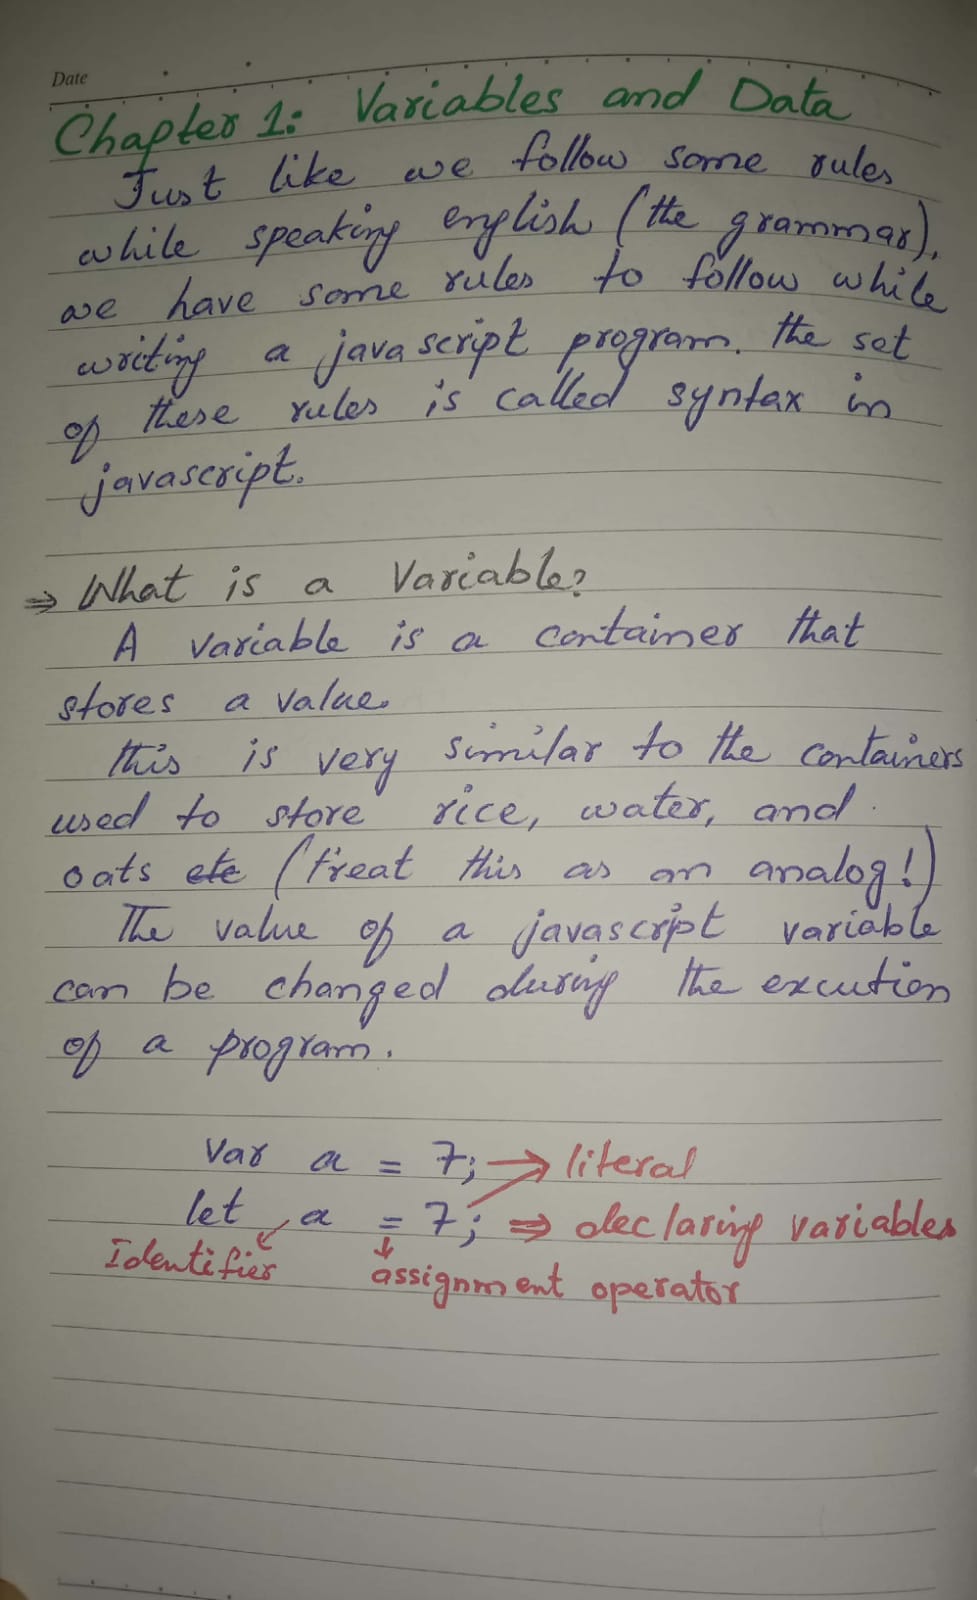 Date
Chapter 1: Variables and Data
Just like we follow some rules
while speaking english (the grammar),
we have some rules to follow while
writing a javascript program. the set
of these rules is called syntax in
javascript.
⇒ What is a Variable?
A variable is a container that
stores a value.
this is very similar to the containers
used to store rice, water, and
oats etc (treat this as an analog!)
The value of a javascript variable
can be changed during the excution
of a program.
Var a = 7; → literal
let a = 7; ⇒ declaring variables
Identifier assignment operator